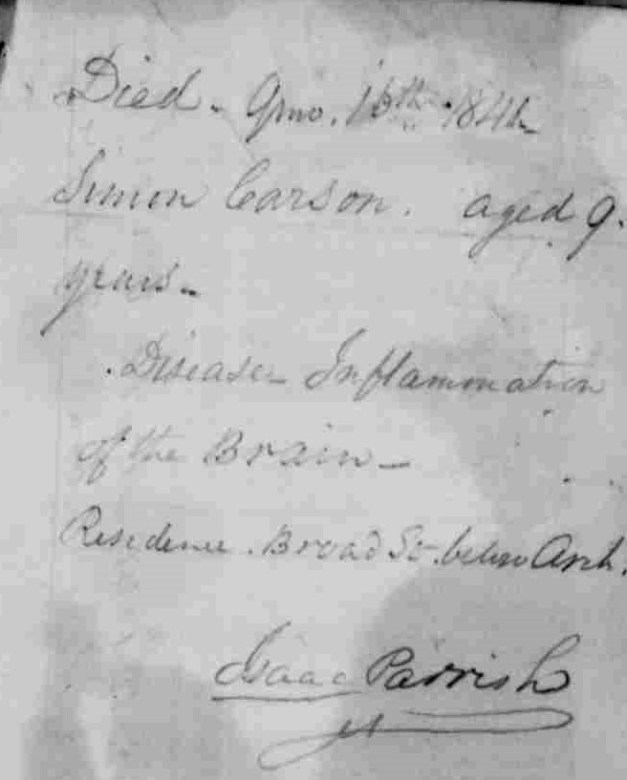 Died. 9mo. 15th 1842
Simon Carson. aged 9.
years.
Disease Inflammation
of the Brain
Residence. Broad St. below Arch.
Isaac Parrish